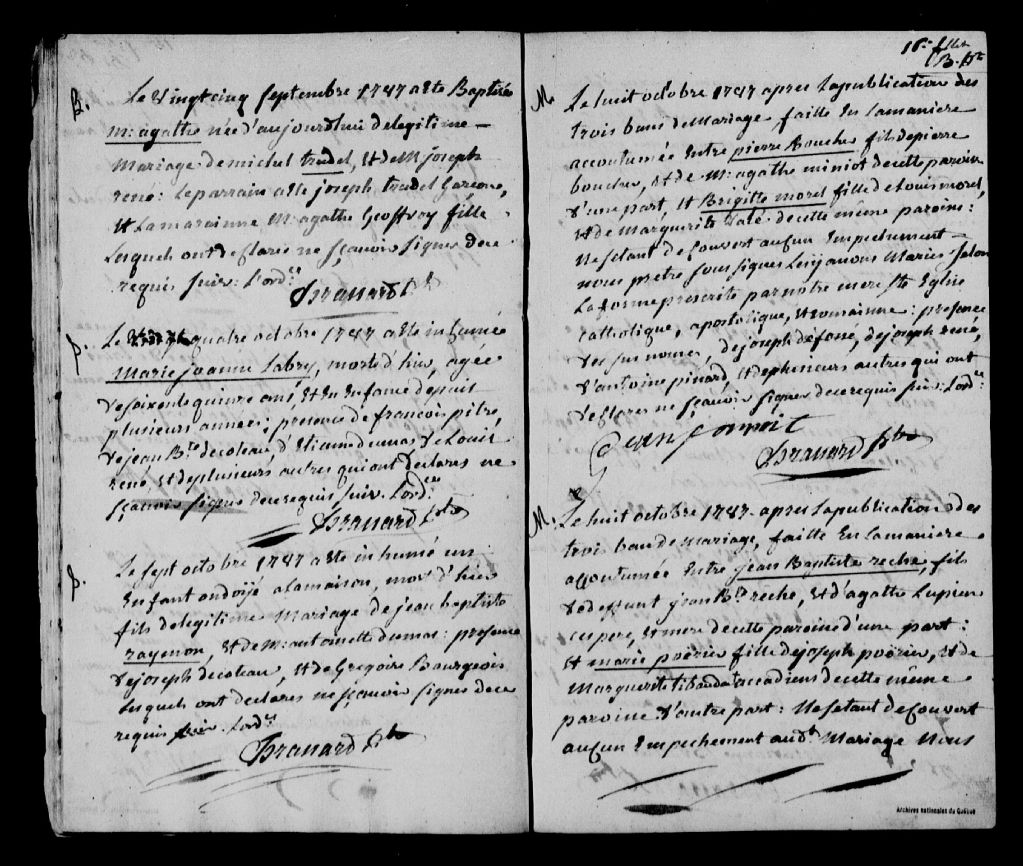 B. Le Vingt cinq septembre 1787 a ete Baptisée
m: agathe née d'aujourdhui de legitime
Mariage de michel trudel, Et de M: joseph
rené: Le parrain a ete joseph trudel Garcons,
Et La marainne M: agathe Geoffroy fille
Lesquels ont declarés ne sçavoir signer de ce
requis suiv: L'ord.ce
Brauard Pt.
S. Le quatre octobre 1787 a ete inhumée
Marie joanne Labry, morte d'hier, agée
de soixente quinze ans, Et En Enfance depuis
plusieurs années; presence de francois pitre,
de jean B.te decoteau, d'Etienne dumas de Louis
rené, Et de plusieurs autres qui ont declarés ne
sçavoir signer de ce requis suiv. L'ord.ce
Brauard Ptr
S. Le sept octobre 1787 a ete inhumé un
Enfant ondoijé a la maison, mort d'hier
fils de legitime Mariage de jean baptiste
raymon, Et de M: antoinette dumas: presence
de joseph decoteau, Et de Gregoire Bourgeois
lesquels ont declarés ne sçavoir signer de ce
requis suiv. L'ord.ce
Brauard Ptr
16.e fllet
B. Pt
M. Le huit octobre 1787 apres La publication des
trois bans de Mariage faitte En La maniere
accoutumée Entre pierre Boucher fils de pierre
boucher, Et de M: agathe miniot de cette paroisse
d'une part, Et Brigitte morel fille de Louis morel,
Et de Marguerite de cette même paroisse:
Ne s'etant decouvert aucun Empechement
nous pretre sous signes Les y avons Mariés selon
La forme prescrite par notre mere Ste Eglise
catholique, apostolique, Et romainne: presence
des sus només, de joseph defoné, de joseph rené,
d'antoine pinard, Et de plusieurs autres qui ont
declarés ne sçavoir signer de ce requis suiv: L'ord.ce
Brauard Ptr
M. Le huit octobre 1787. apres La publication des
trois bans de Mariage, faitte En La maniere
accoutumée Entre jean Baptiste reche, fils
de deffunt jean B.te reche, Et d'agathe Lupien
ces pere, Et mere de cette paroisse d'une part:
Et marie poërier fille de joseph poërier, Et de
Marguerite tibaudat accadiens de cette même
paroisse d'autre part: Ne s'etant decouvert
aucun Empechement aud.t Mariage Nous
Archives nationales du Québec